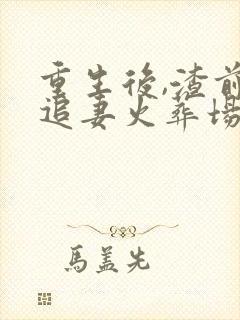 重生後,渣前
追妻火葬場
馬蓋先